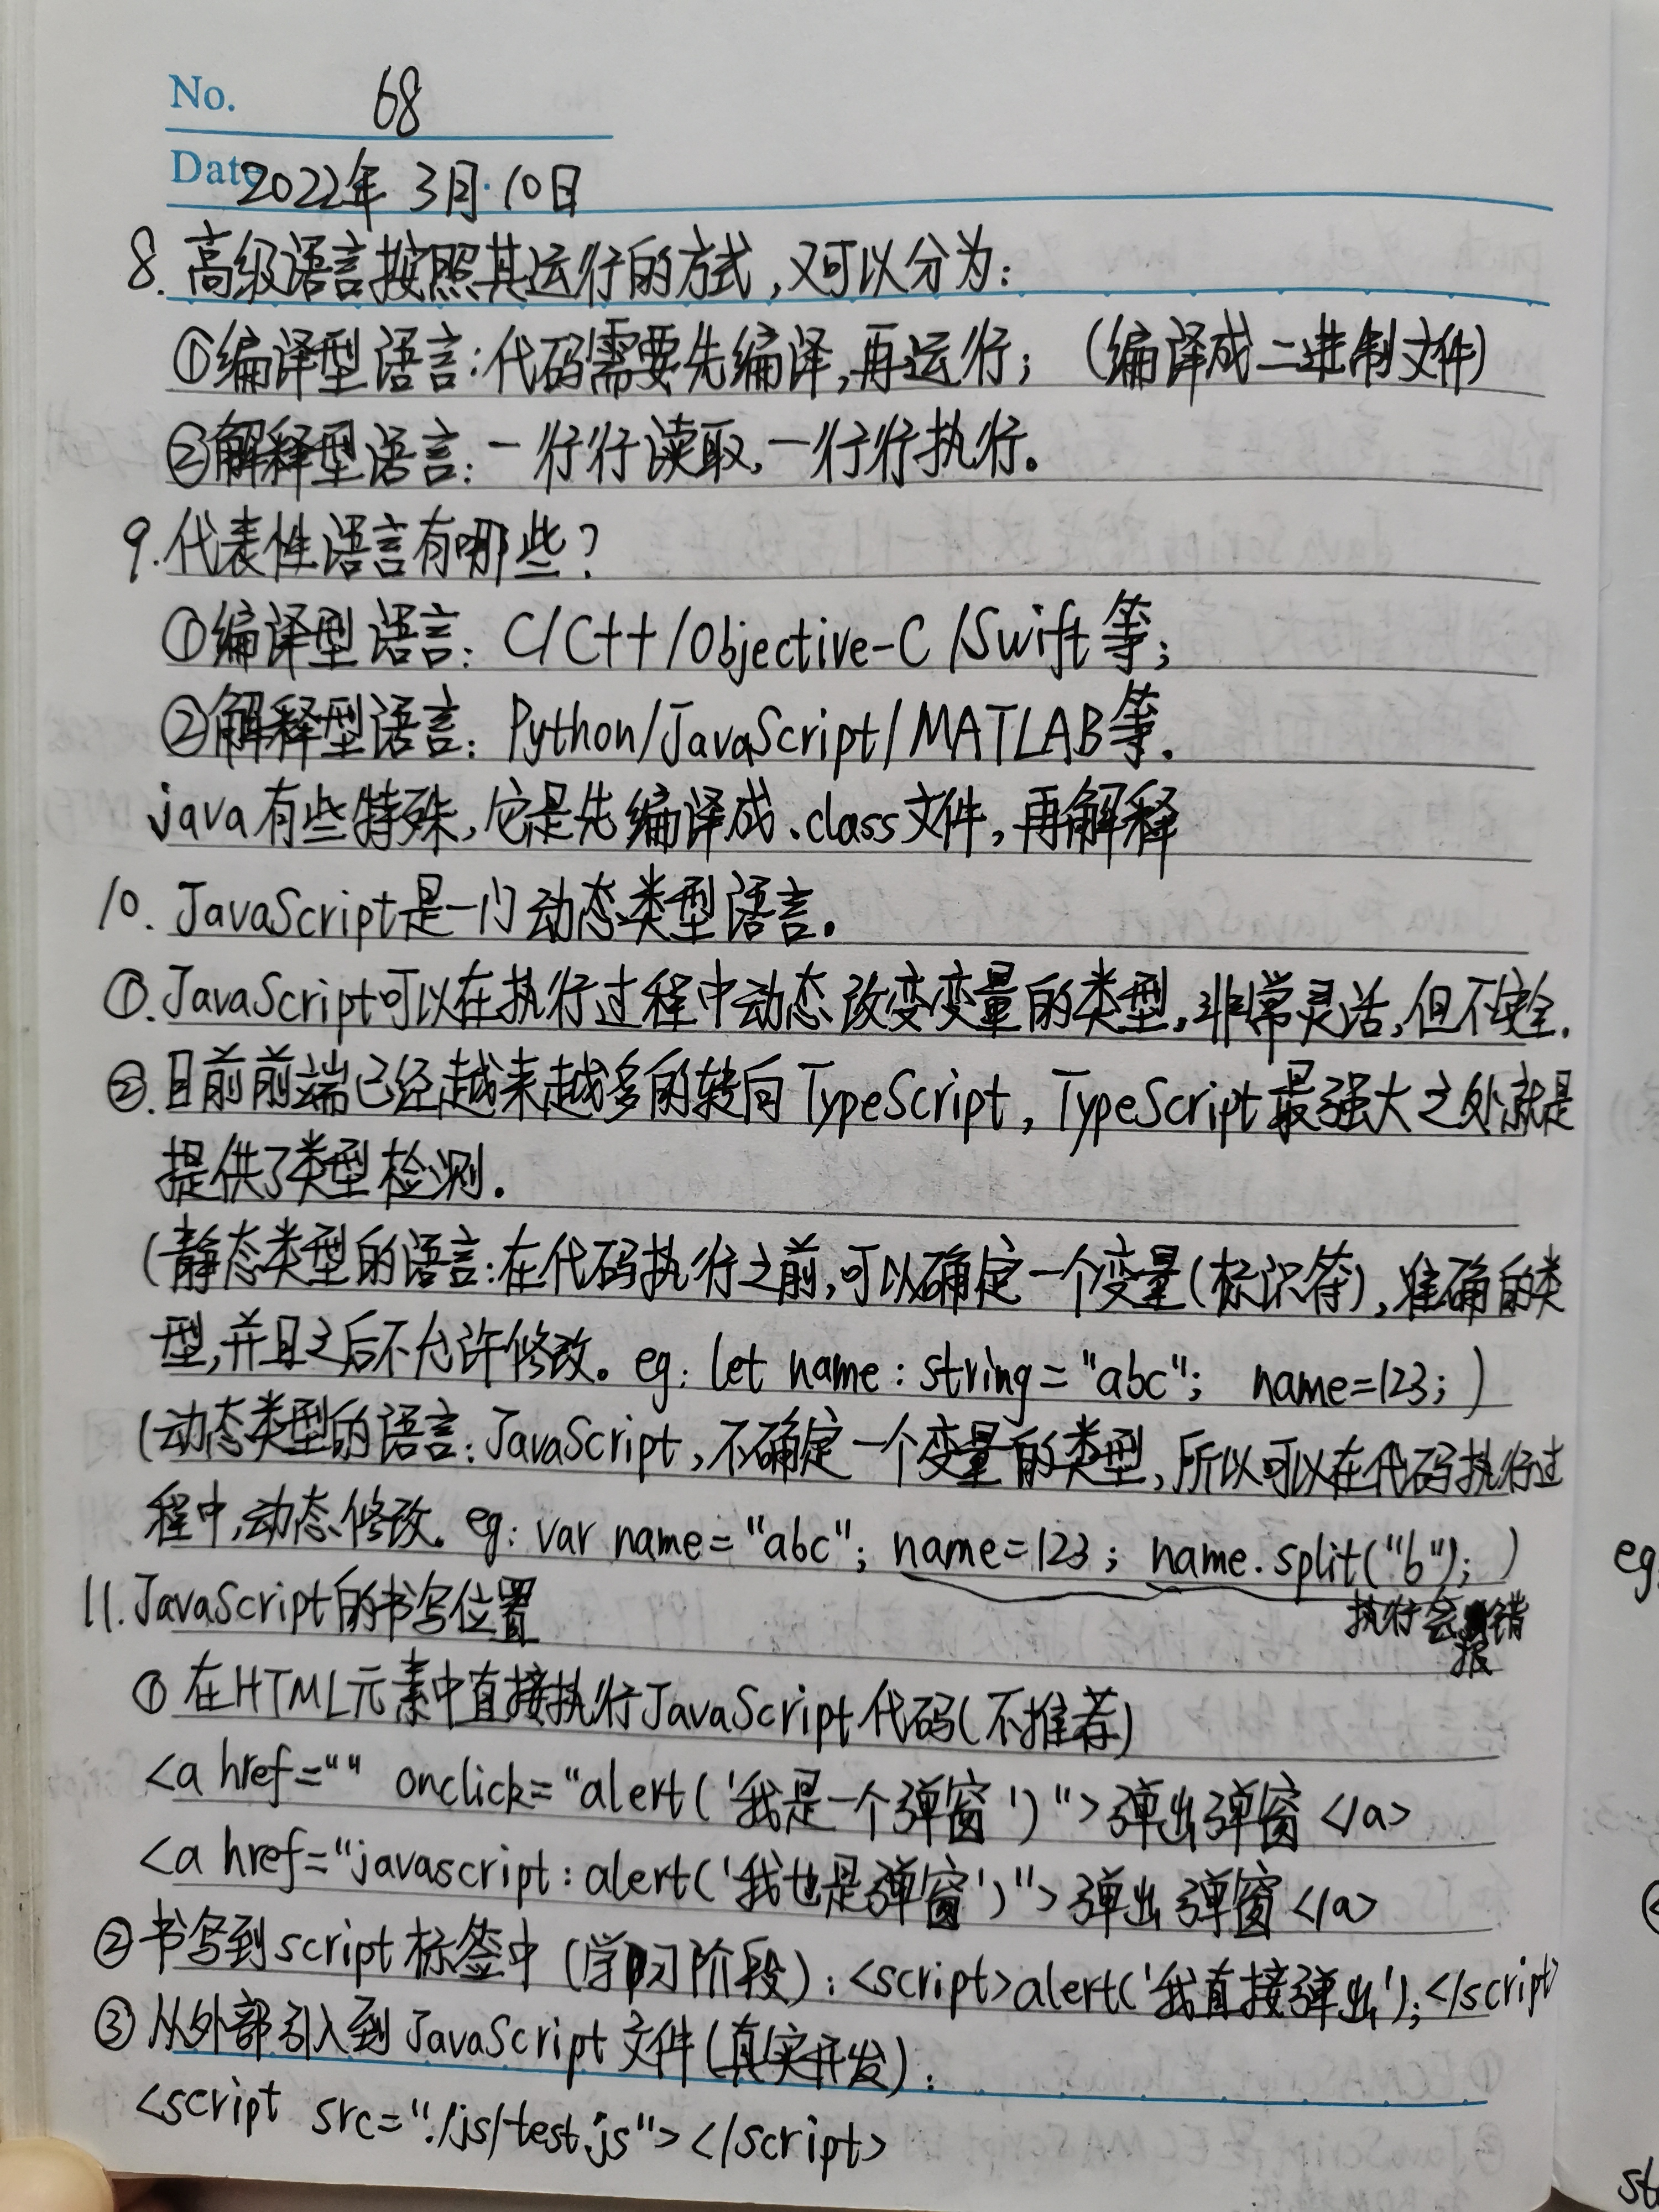 No. 68
Date 2022年 3月·10日
8. 高级语言按照其运行的方式,又可以分为:
①编译型语言:代码需要先编译,再运行; (编译成二进制文件)
②解释型语言:一行行读取,一行行执行。
9.代表性语言有哪些?
①编译型语言: C/C++/Objective-C/Swift等;
②解释型语言: Python/JavaScript/MATLAB等.
java有些特殊,它是先编译成.class文件,再解释
10. JavaScript是一门动态类型语言.
①.JavaScript可以在执行过程中动态改变变量的类型,非常灵活,但不安全.
②.目前前端已经越来越多的转向TypeScript, TypeScript最强大之处就是
提供了类型检测.
(静态类型的语言:在代码执行之前,可以确定一个变量(标识符),准确的类
型,并且之后不允许修改。eg: let name: string="abc"; name=123; )
(动态类型的语言: JavaScript,不确定一个变量的类型,所以可以在代码执行过
程中,动态修改. eg: var name="abc"; name=123; name.split("b"); )
执行会报错
11.JavaScript的书写位置
① 在HTML元素中直接执行JavaScript代码(不推荐)
<a href="" onclick="alert('我是一个弹窗')">弹出弹窗</a>
<a href="javascript:alert('我也是弹窗')">弹出弹窗</a>
②书写到script标签中(学习阶段): <script>alert('我直接弹出');</script>
③从外部引入到JavaScript文件(真实开发):
<script src="./js/test.js"></script>
eg
st